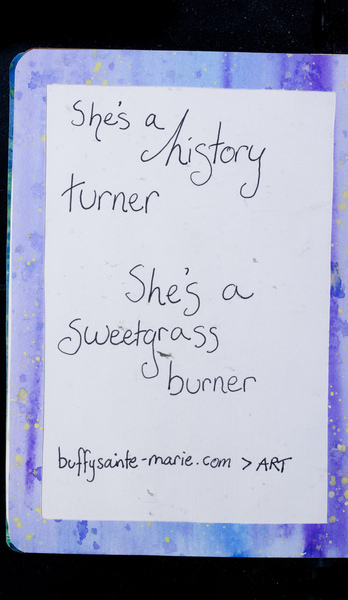 She's a
history
turner
She's a
sweetgrass
burner
buffysainte-marie.com > ART